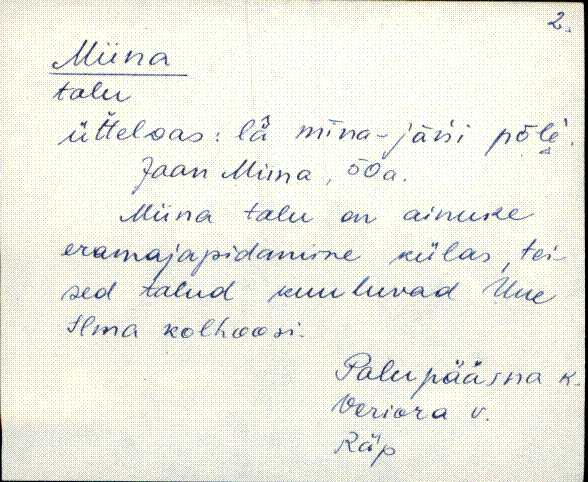 2.
Miina
talu
üt̆teloas: lä̆ mīna-jäŕsi põlè.
Jaan Miina, 50a.
Miina talu on ainuke
eramajapidamine külas, tei-
sed talud kuuluvad Uue
Ilma kolhoosi.
Palupääsna k.
Veriora v.
Räp